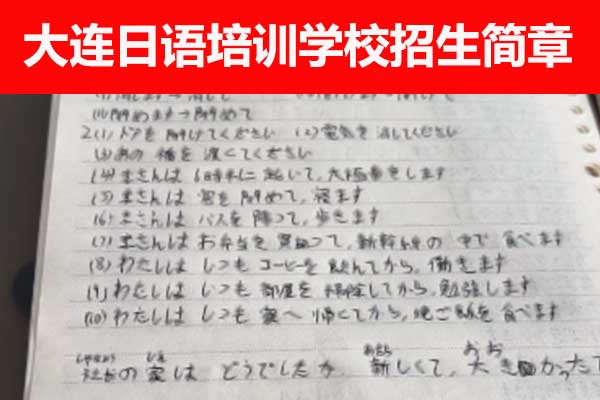 大连日语培训学校招生简章
(4)閉めます→閉めて
2.(1)ドアを開けてください (2)電気を消してください
(3)あの 塩を渡してください
(4)王さんは 6時半に 起いて,太極拳をします
(5)王さんは 窓を閉めて,寝ます
(6)王さんは バスを降って,歩きます
(7)王さんは お弁当を 買って,新幹線の 中で 食べます
(8)わたしは いつも コーヒーを 飲んでから,働きます
(9)わたしは いつも 部屋を 掃除してから,勉強します
(10)わたしは いつも 家へ 帰てから,晩ご飯を 食べます
社長の 家は どうでしたか. 新しくて,大きかったで